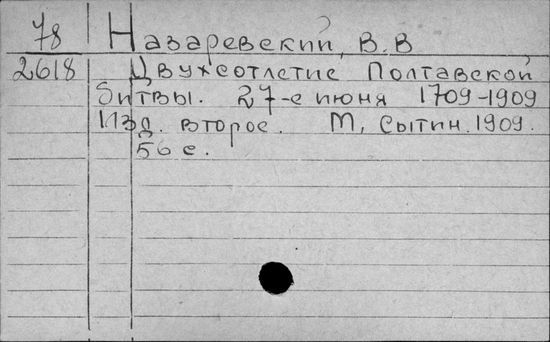 78 Назаревский, В.В
2618 Двухсотлетие Полтавской
битвы. 27-е июня 1709-1909
Изд. второе. М, Сытин.1909.
56 с.